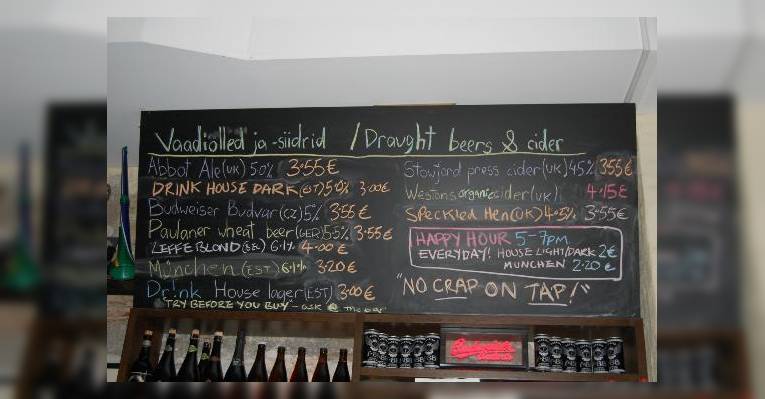 Vaadiõlled ja -siidrid / Draught beers & cider
Abbot Ale (UK) 5.0% 3.55€
DRINK HOUSE DARK (EST) 5.0% 3.00€
Budweiser Budvar (CZ) 5% 3.55€
Paulaner wheat beer (GER) 5.5% 3.55€
LEFFE BLOND (BEL) 6.1% 4.00€
München (EST) 3.20€
Dr!nk House lager (EST) 3.00€
"TRY BEFORE YOU BUY" - ask @ the bar
Stowford press cider (UK) 4.5% 3.55€
Westons organic cider (UK) 4.15€
Speckled Hen (UK) 4.5% 3.55€
HAPPY HOUR 5-7pm
EVERYDAY! HOUSE LIGHT/DARK 2€
MUNCHEN 2.20€
"NO CRAP ON TAP!"